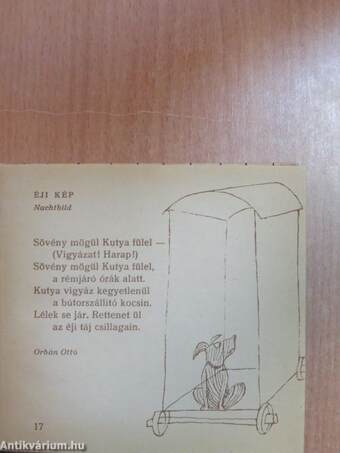 ÉJI KÉP
Nachtbild
Sövény mögül Kutya fülel —
(Vigyázat! Harap!)
Sövény mögül Kutya fülel,
a rémjáró órák alatt.
Kutya vigyáz kegyetlenűl
a bútorszállító kocsin.
Lélek se jár. Rettenet ül
az éji táj csillagain.
Orbán Ottó
17
Antikvárium.hu